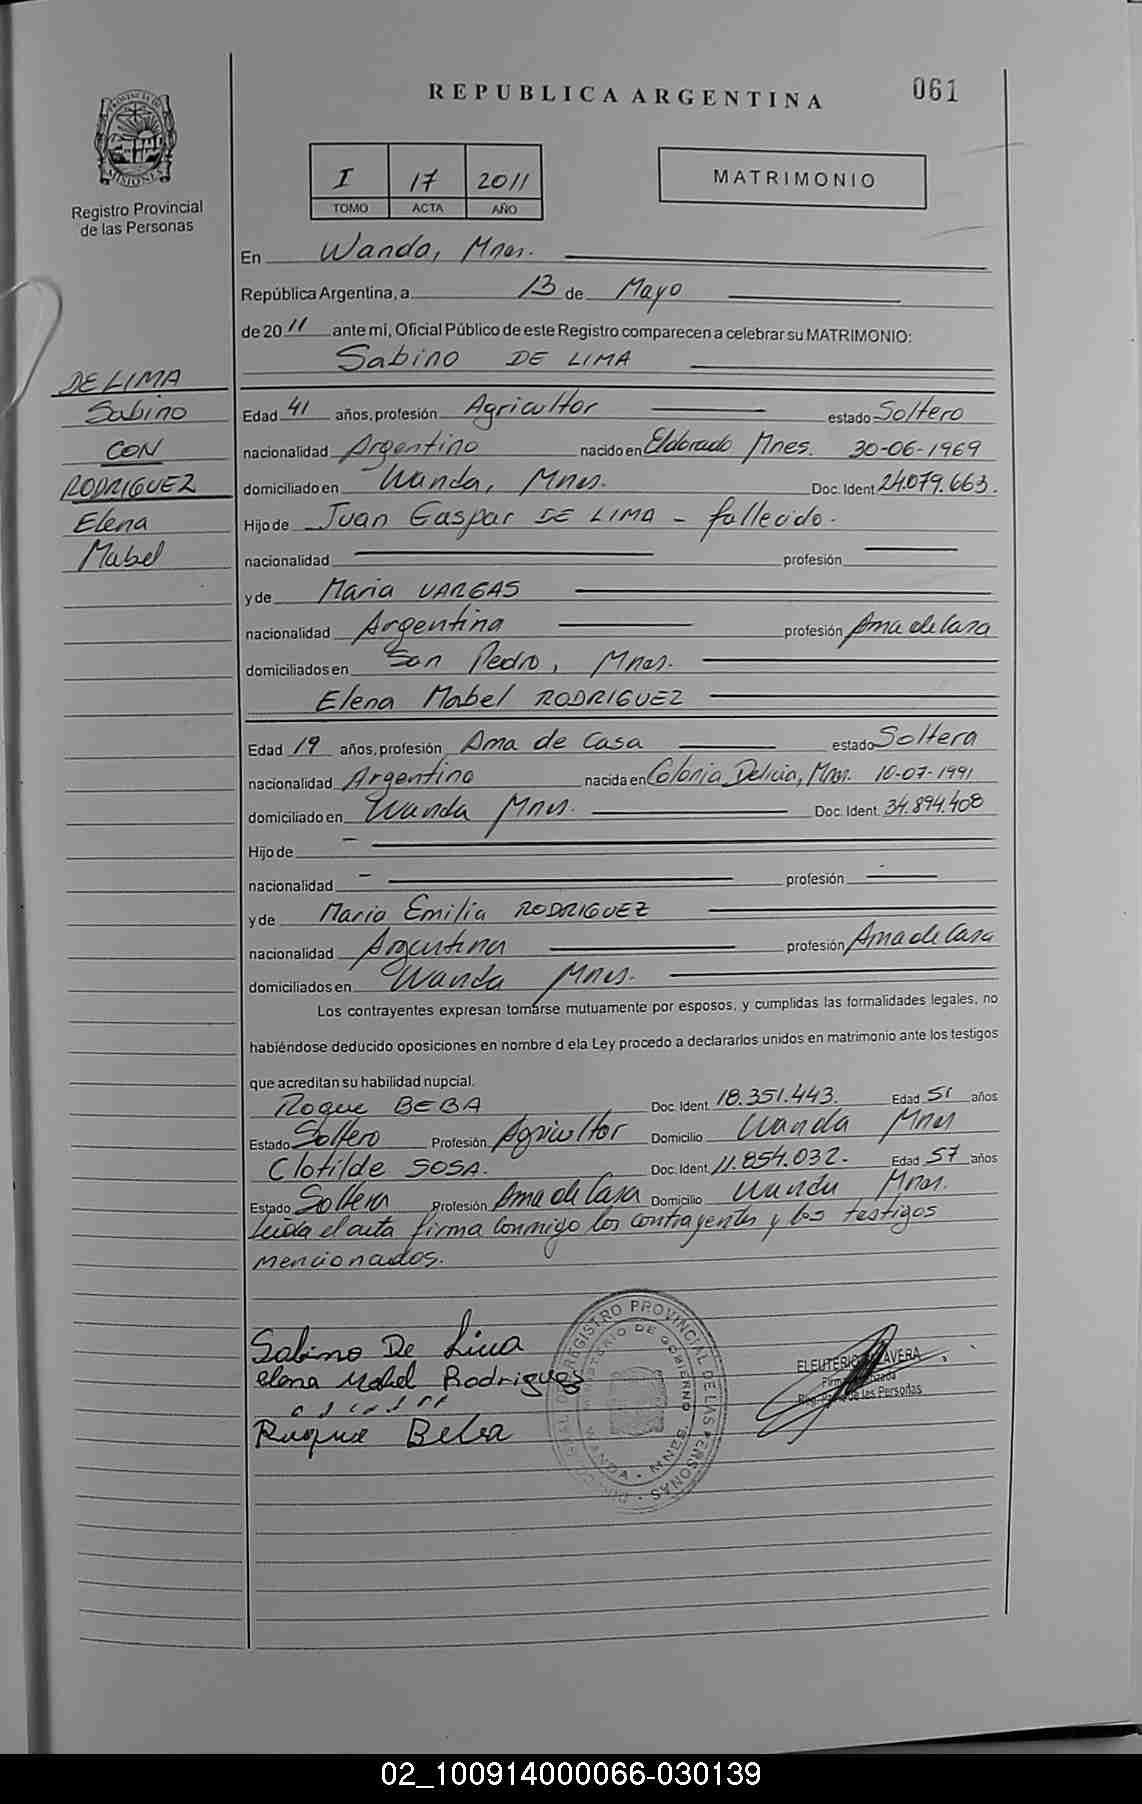 REPUBLICA ARGENTINA
061
PROVINCIA DE MISIONES
Registro Provincial
de las Personas
I 17 2011
TOMO ACTA AÑO
MATRIMONIO
En Wanda, Mnes.
República Argentina, a 13 de Mayo
de 2011 ante mí, Oficial Público de este Registro comparecen a celebrar su MATRIMONIO:
Sabino DE LIMA
DE LIMA
Sabino
CON
RODRIGUEZ
Elena
Mabel
Edad 41 años, profesión Agricultor estado Soltero
nacionalidad Argentino nacido en Eldorado Mnes. 30-06-1969
domiciliado en Wanda, Mnes. Doc. Ident. 24.079.663.
Hijo de Juan Gaspar DE LIMA - fallecido.
nacionalidad profesión
y de Maria VARGAS
nacionalidad Argentina profesión Ama de Casa
domiciliados en San Pedro, Mnes.
Elena Mabel RODRIGUEZ
Edad 19 años, profesión Ama de Casa estado Soltera
nacionalidad Argentina nacida en Colonia Delicia, Mnes. 10-07-1991
domiciliado en Wanda Mnes. Doc. Ident. 34.894.408
Hijo de -
nacionalidad - profesión -
y de Maria Emilia RODRIGUEZ
nacionalidad Argentina profesión Ama de Casa
domiciliados en Wanda Mnes.
Los contrayentes expresan tomarse mutuamente por esposos, y cumplidas las formalidades legales, no
habiéndose deducido oposiciones en nombre d ela Ley procedo a declararlos unidos en matrimonio ante los testigos
que acreditan su habilidad nupcial.
Roque BEBA Doc. Ident. 18.351.443. Edad 51 años
Estado Soltero Profesión Agricultor Domicilio Wanda Mnes
Clotilde SOSA. Doc. Ident. 11.854.032. Edad 57 años
Estado Soltera Profesión Ama de Casa Domicilio Wanda, Mnes.
Leida el acta firma conmigo los contrayentes y los testigos
mencionados.
Sabino De Lima
elena Mabel Rodriguez
Ruque Beba
REGISTRO PROVINCIAL DE LAS PERSONAS
MINISTERIO DE GOBIERNO
WANDA - MNES
ELEUTERIO AVERA
Reg. de las Personas
02_100914000066-030139